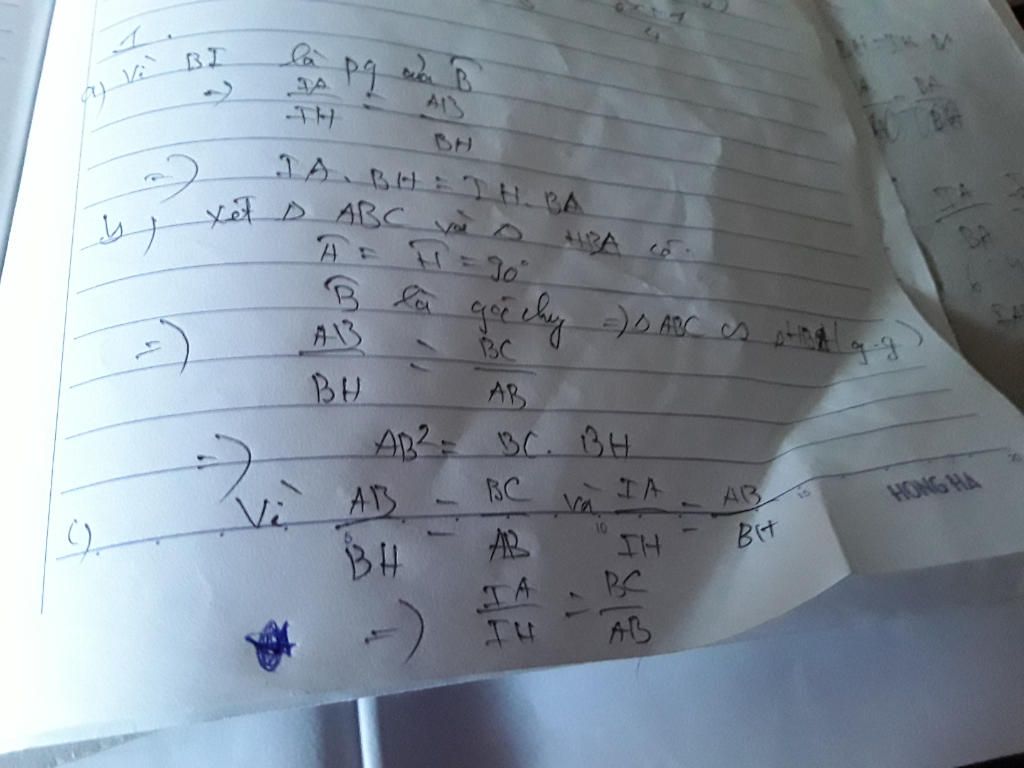 1.
a) Vì BI là pg của B̂
=> IA/IH = AB/BH
=> IA. BH = IH. BA
b) Xét Δ ABC và Δ HBA có
Â = Ĥ = 90°
B̂ là góc chung => Δ ABC ∽ ΔHBA (g.g)
=> AB/BH = BC/AB
=> AB² = BC. BH
c) Vì AB/BH = BC/AB và IA/IH = AB/BH
=> IA/IH = BC/AB
HONG HA